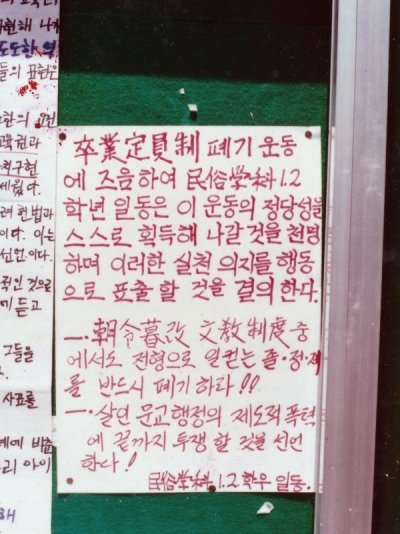 현해 나
도도한 영
들의 표현은
육권과
적구현
세웠다.
려 헌법과
이다. 이는
선언이다.
적인 것으로
에 듣고
그들을
사표를
예에 비춘
리 아이
해
卒業定員制 폐기 운동
에 즈음하여 民俗学科 1.2
학년 일동은 이 운동의 정당성을
스스로 획득해 나갈 것을 천명
하며 이러한 실천 의지를 행동
으로 표출 할 것을 결의 한다.
一. 朝令暮改 文敎制度 중
에서도 전형으로 일컫는 졸·정·제
를 반드시 폐기 하라 !!
一. 살인 문교행정의 제도적 폭력
에 끝까지 투쟁 할 것을 선언
한다!
民俗学科 1.2 학우 일동.